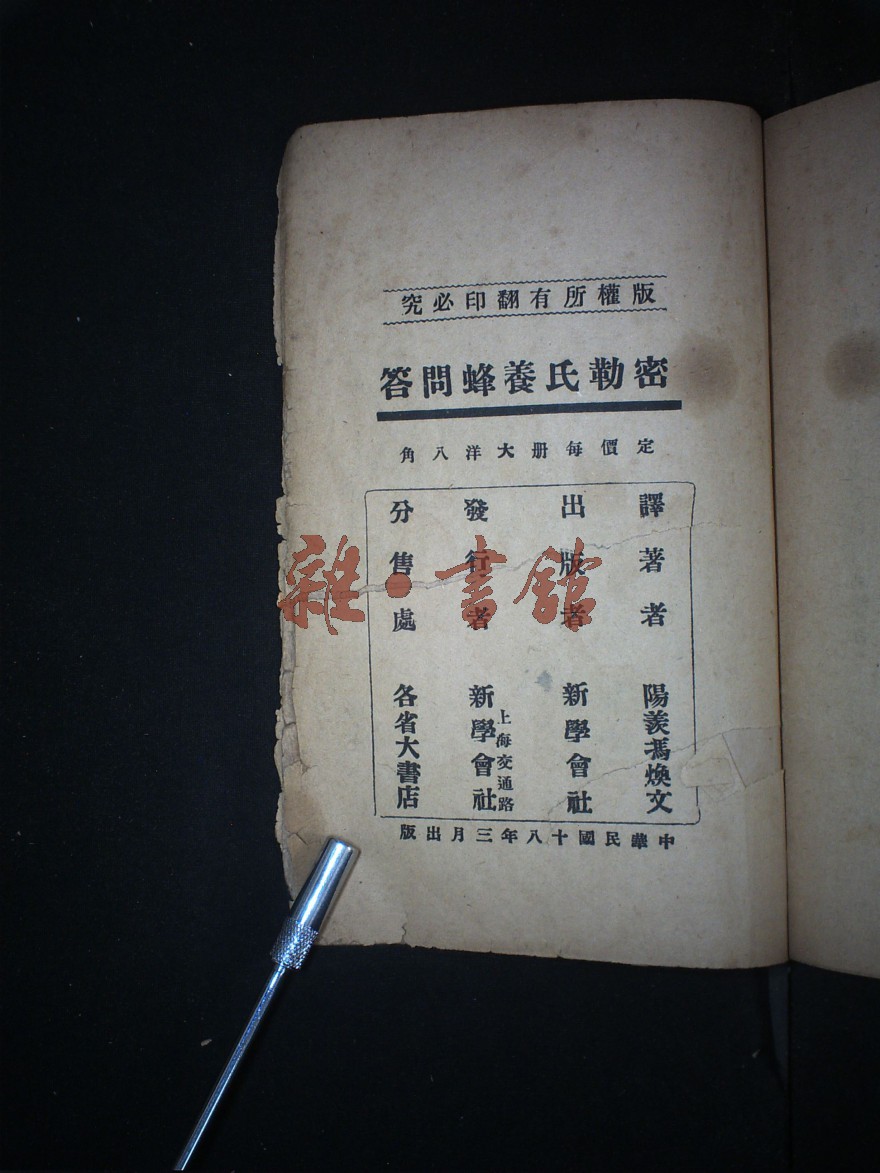 版權所有翻印必究
密勒氏養蜂問答
定價每册大洋八角
譯著者 陽羨馮煥文
出版者 新學會社
發行者 上海交通路 新學會社
分售處 各省大書店
中華民國十八年三月出版
雜·書館